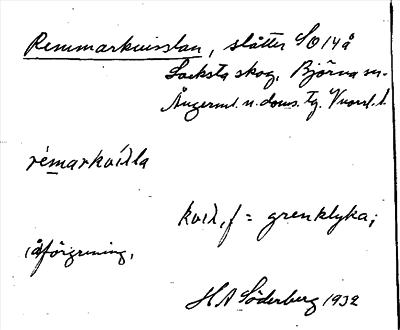 Remmarkvisslan, slåtter SO 14 å
Backsta skog, Björna sn.
Ångerml. n. doms. tg. V.nord. l.
rémarkvíxla
kvixl, f = grenklyka;
i åförgrening.
HA Söderberg 1932